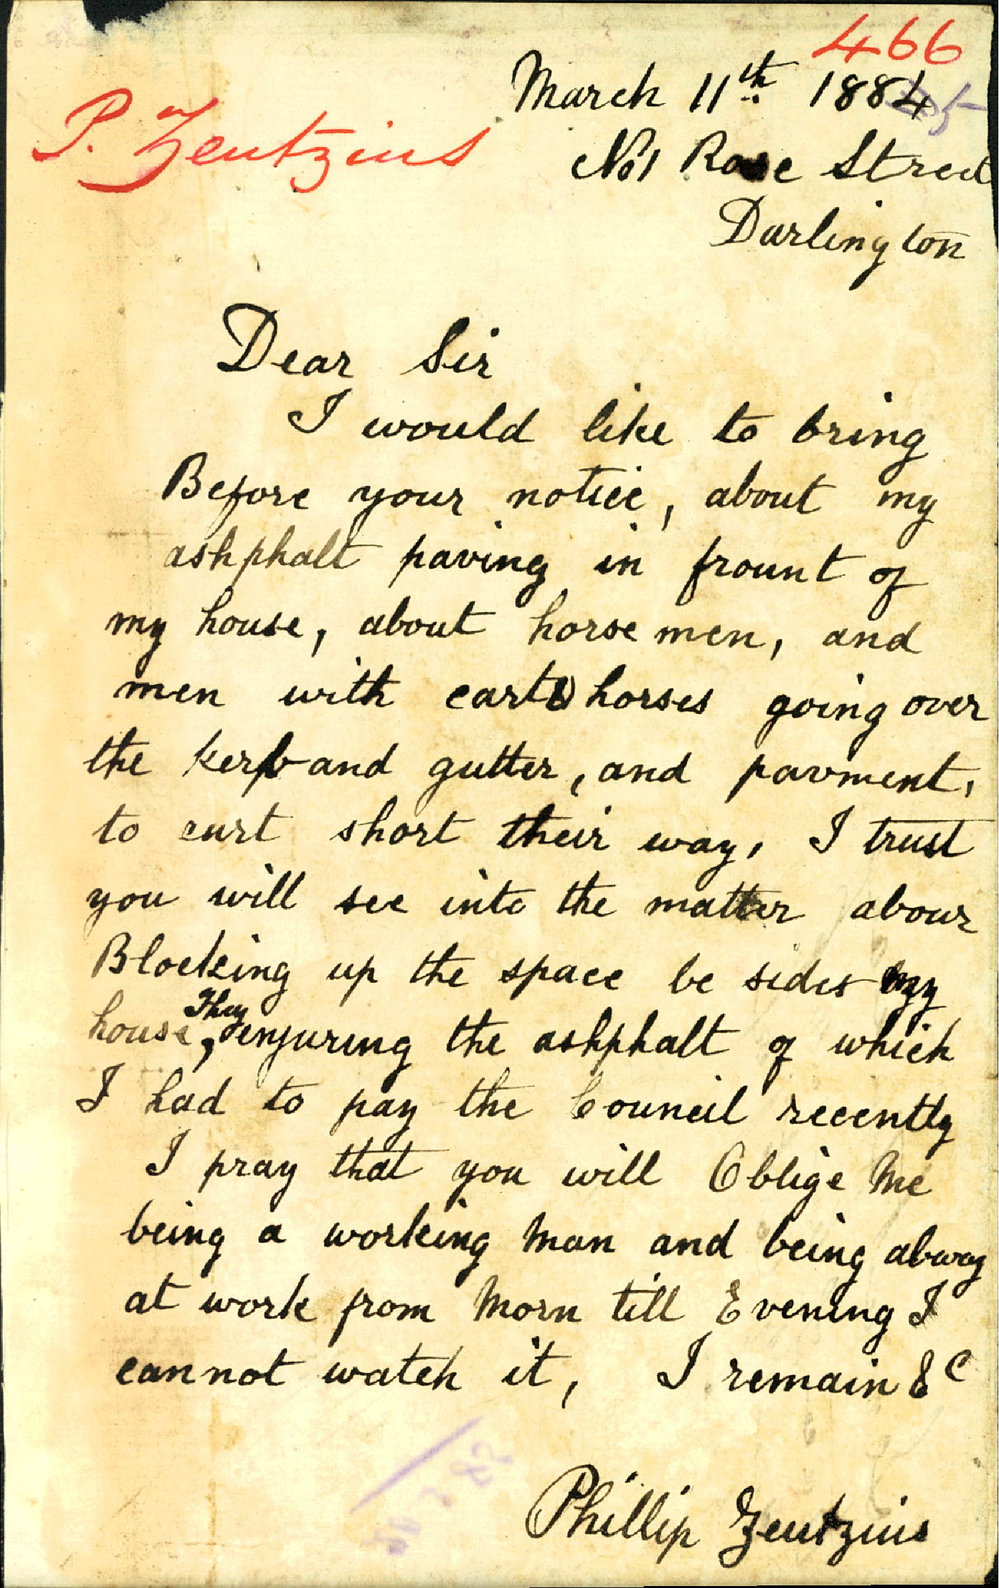 466
March 11th 1884
P. Zeutzius
No 1 Rose Street
Darlington
Dear Sir
I would like to bring
Before your notice, about my
ashphalt paving in frount of
my house, about horse men, and
men with cart horses going over
the kerb and gutter, and pavment,
to curt short their way, I trust
you will see into the matter abour
Blocking up the space be sides my
They
house, enjuring the ashphalt of which
I had to pay the Council recently
I pray that you will Oblige Me
being a working Man and being alway
at work from Morn till Evening I
cannot watch it, I remain &c
Phillip Zeutzius